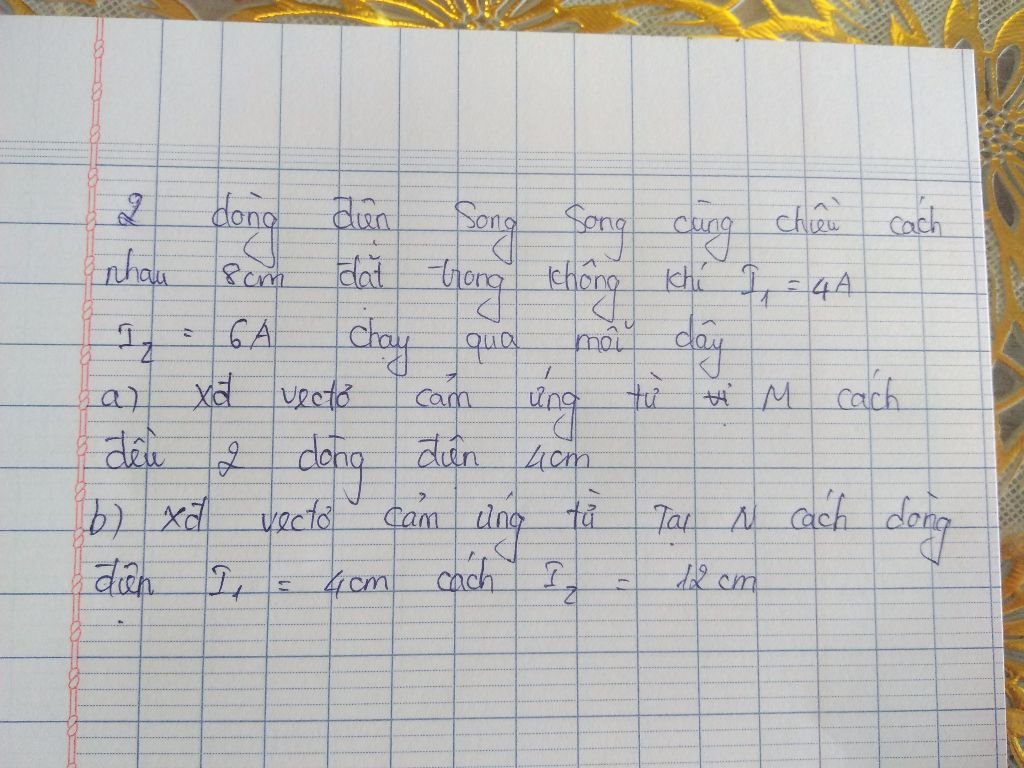 2 dòng điện song song cùng chiều cách
nhau 8cm đặt trong không khí I₁ = 4A
I₂ = 6A chạy qua mỗi dây
a) xđ vectơ cảm ứng từ M cách
đều 2 dòng điện 4cm
b) xđ vectơ cảm ứng từ Tại N cách dòng
điện I₁ = 4cm cách I₂ = 12cm